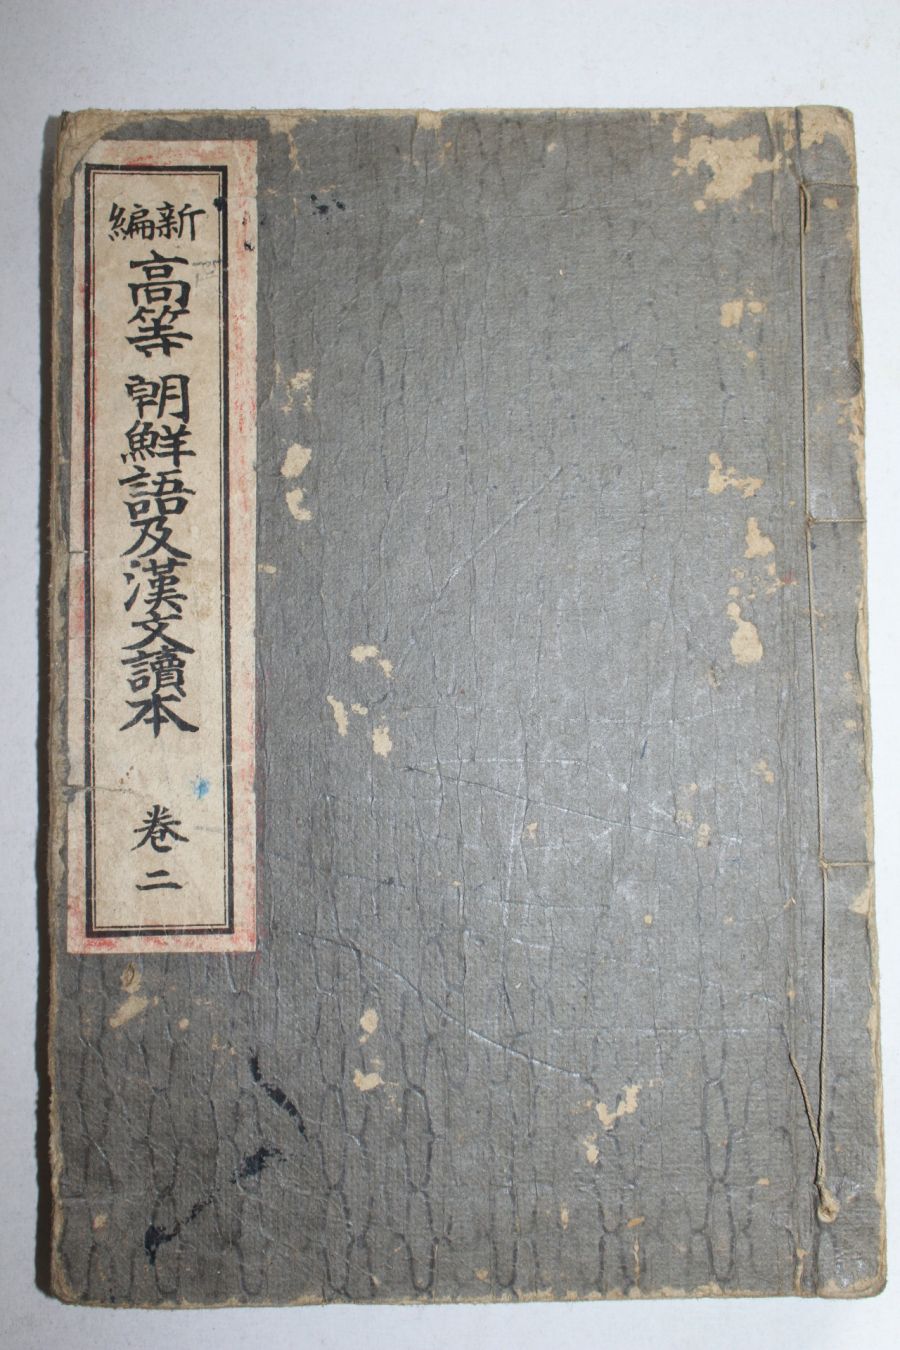 新編
高等朝鮮語及漢文讀本 卷二